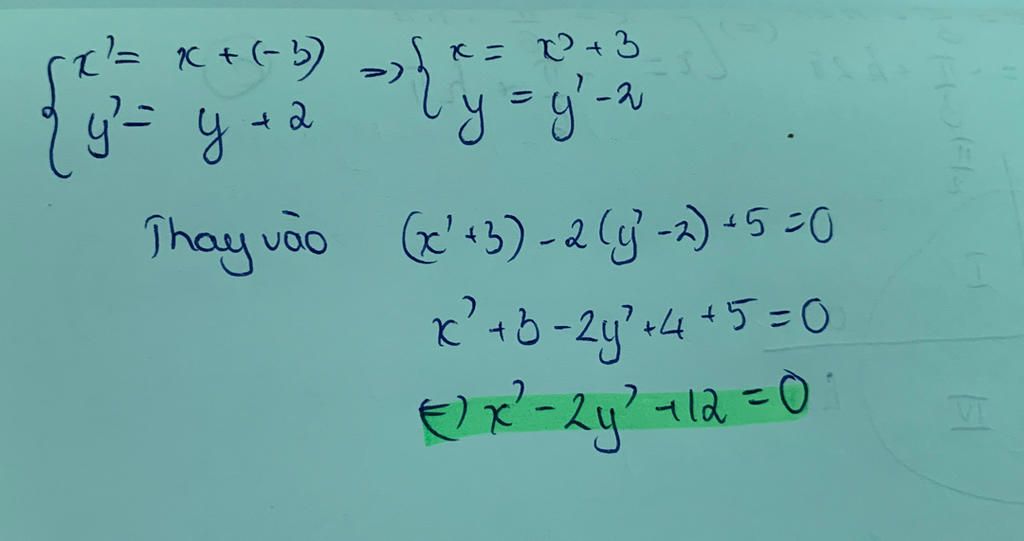 { x' = x + (-3) => { x = x' + 3
{ y' = y + 2 { y = y' - 2
Thay vào (x' + 3) - 2(y' - 2) + 5 = 0
x' + 3 - 2y' + 4 + 5 = 0
<=> x' - 2y' + 12 = 0